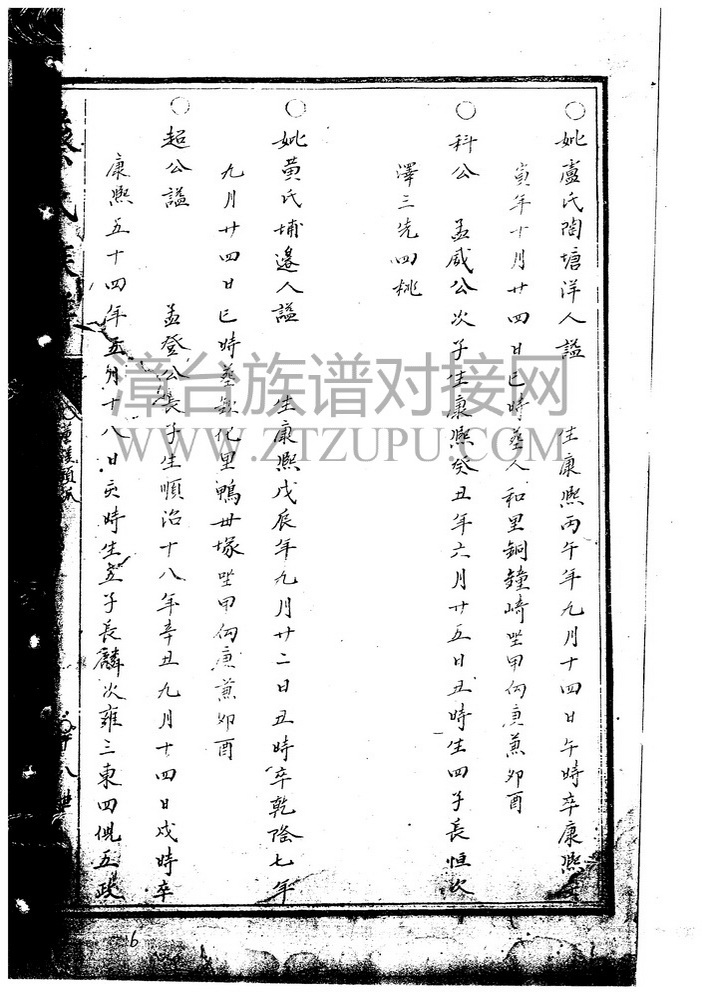 ○妣盧氏陶塘洋人謚 生康熙丙午年九月十四日午時卒康熙
寅年十月廿四日巳時葬人和里銅鐘崎坐甲向庚兼卯酉
○科公 孟威公次子生康熙癸丑年六月廿五日丑時生四子長恒次
澤三先四桃
○妣黃氏埔邊人謚 生康熙戊辰年九月廿二日丑時卒乾隆七年
九月廿四日巳時葬欽化里鴨母塚坐甲向庚兼卯酉
○超公謚 孟登公長子生順治十八年辛丑九月十四日戌時卒
康熙五十四年五月十八日亥時生五子長麟次雍三東四慨五政
十八世
漳台族谱对接网
WWW.ZTZUPU.COM
6